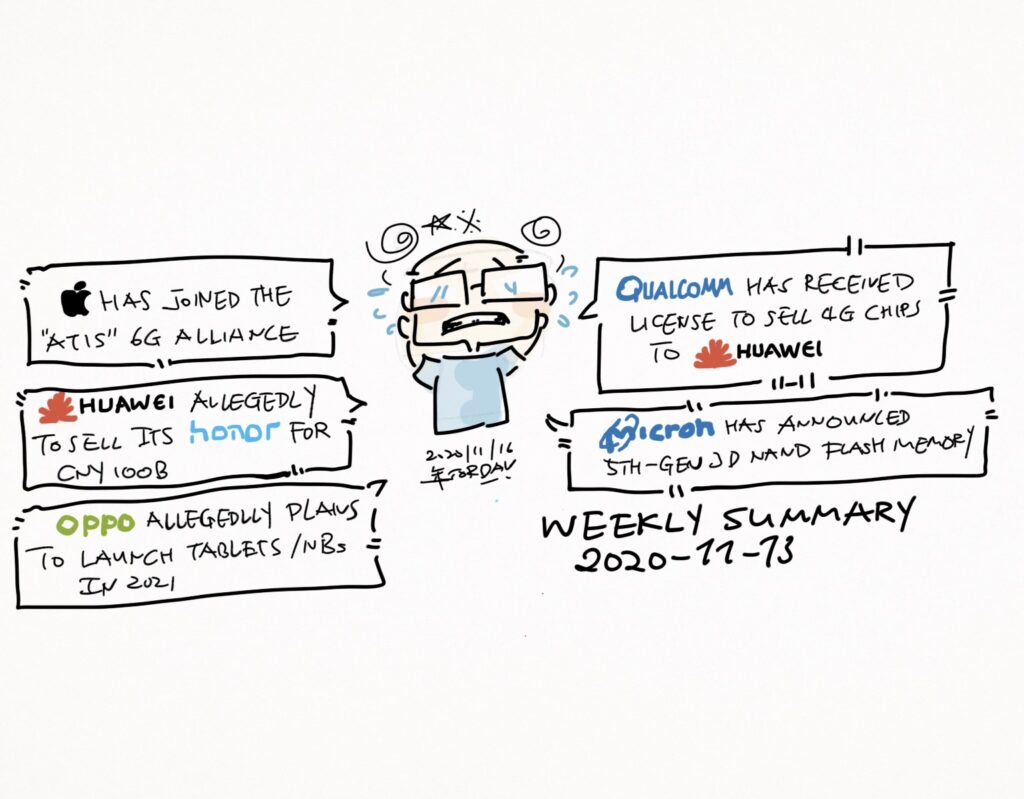 HAS JOINED THE
"ATIS" 6G ALLIANCE
HUAWEI ALLEGEDLY
TO SELL ITS honor FOR
CNY 100B
oppo ALLEGEDLY PLANS
TO LAUNCH TABLETS/NBs
IN 2021
2020/11/16
QUALCOMM HAS RECEIVED
LICENSE TO SELL 4G CHIPS
TO HUAWEI
Micron HAS ANNOUNCED
5TH-GEN 3D NAND FLASH MEMORY
WEEKLY SUMMARY
2020-11-13